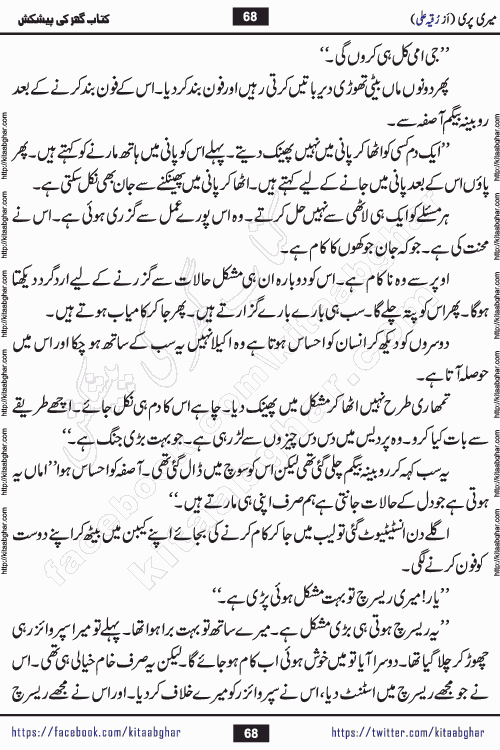 میری پری (از رقیہ علی)
68
کتاب گھر کی پیشکش
’’جی امی کل ہی کروں گی۔‘‘
پھر دونوں ماں بیٹی تھوڑی دیر باتیں کرتی رہیں اور فون بند کر دیا۔ اس کے فون بند کرنے کے بعد
روبینہ بیگم آصفہ سے۔
’’ایک دم کسی کو اٹھا کر پانی میں نہیں پھینک دیتے۔ پہلے اس کو پانی میں ہاتھ مارنے کو کہتے ہیں۔ پھر
پاؤں اس کے بعد پانی میں جانے کے لیے کہتے ہیں۔ اٹھا کر پانی میں پھینکنے سے جان بھی نکل سکتی ہے۔
ہر مسئلے کو ایک ہی لاٹھی سے نہیں حل کرتے۔ وہ اس پورے عمل سے گزری ہوئی ہے۔ اس نے
محنت کی ہے۔ جو کہ جان جوکھوں کا کام ہے۔
اوپر سے وہ ناکام ہے۔ اس کو دوبارہ ان ہی مشکل حالات سے گزرنے کے لیے ارد گرد دیکھنا
ہوگا۔ پھر اس کو پتہ چلے گا۔ سب ہی بارے بارے گزارتے ہیں۔ پھر جا کر کامیاب ہوتے ہیں۔
دوسروں کو دیکھ کر انسان کو احساس ہوتا ہے وہ اکیلا نہیں یہ سب کے ساتھ ہو چکا اور اس میں
حوصلہ آتا ہے۔
تمھاری طرح نہیں اٹھا کر مشکل میں پھینک دیا۔ چاہے اس کا دم ہی نکل جائے۔ اچھے طریقے
سے بات کیا کرو۔ وہ پردیس میں دس دس چیزوں سے لڑ رہی ہے۔ جو بہت بڑی جنگ ہے۔‘‘
یہ سب کہہ کر روبینہ بیگم چلی گئی تھی لیکن اس کو سوچ میں ڈال گئی تھی۔ آصفہ کو احساس ہوا ’’اماں یہ
ہوتی ہے جو دل کے حالات جانتی ہے ہم صرف اپنی ہی مارتے ہیں۔‘‘
اگلے دن انسٹیٹیوٹ گئی تو لیب میں جا کر کام کرنے کی بجائے اپنے کیبن میں بیٹھ کر اپنے دوست
کو فون کرنے لگی۔
’’یار! میری ریسرچ تو بہت مشکل ہوئی پڑی ہے۔‘‘
’’یہ ریسرچ ہوتی ہی بڑی مشکل ہے۔ میرے ساتھ تو بہت برا ہوا تھا۔ پہلے تو میرا سپروائزر ہی
چھوڑ کر چلا گیا تھا۔ دوسرا آیا تو میں خوش ہوئی اب کام ہو جائے گا۔ لیکن یہ صرف خام خیالی ہی تھی۔ اس
نے جو مجھے ریسرچ میں اسٹنٹ دیا، اس نے سپروائزر کو میرے خلاف کر دیا۔ اور اس نے مجھے ریسرچ
http://kitaabghar.com
http://kitaabghar.com
http://kitaabghar.com
http://kitaabghar.com
http://kitaabghar.com
http://kitaabghar.com
https://facebook.com/kitaabghar
68
https://twitter.com/kitaabghar